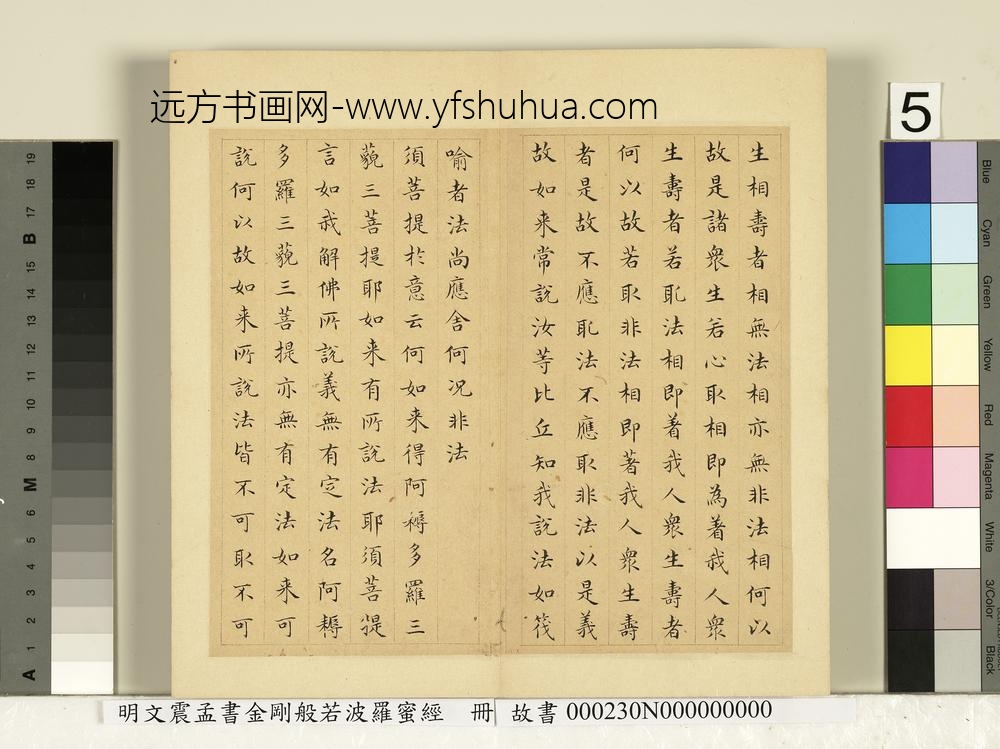 远方书画网-www.yfshuhua.com
5
生相壽者相無法相亦無非法相何以
故是諸衆生若心取相即為著我人衆
生壽者若取法相即著我人衆生壽者
何以故若取非法相即著我人衆生壽
者是故不應取法不應取非法以是義
故如来常說汝等比丘知我說法如筏
喻者法尚應舍何况非法
須菩提於意云何如来得阿耨多羅三
藐三菩提耶如来有所說法耶須菩提
言如我解佛所說義無有定法名阿耨
多羅三藐三菩提亦無有定法如来可
說何以故如来所說法皆不可取不可
19
18
17
B
15
14
13
12
11
10
9
8
M
6
5
4
3
2
1
A
Blue
Cyan
Green
Yellow
Red
Magenta
White
3/Color
Black
明文震孟書金剛般若波羅蜜經 冊 故書 000230N000000000